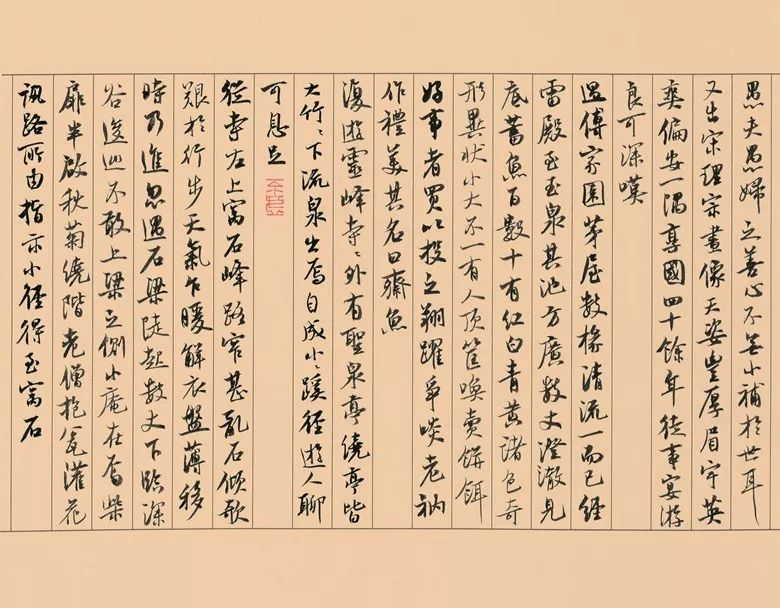 愚夫愚婦之善心不無小補於世耳
又出宋理宗畫像天姿豐厚眉宇英
爽偏安一隅享國四十餘年從事宴游
良可深嘆
過傅家園茅屋數椽清流一而已經
雷殿至玉泉其池方廣數丈澄澈見
底蓄魚百數十有紅白青黃諸色奇
形異狀小大不一有人頂筐喚賣餅餌
好事者買以投之翔躍爭啖老衲
作禮美其名曰齋魚
復遊靈峰寺〻外有聖泉亭繞亭皆
大竹〻下流泉出焉自成小〻蹊徑遊人聊
可息足
從寺右上窩石峰路窄甚亂石傾欹
艱於行步天氣乍暖解衣盤薄移
時乃進忽遇石梁陡起數丈下臨深
谷逡巡不敢上梁之側小庵在焉柴
扉半啟秋菊繞階老僧抱瓮灌花
訊路所由指示小徑得至窩石